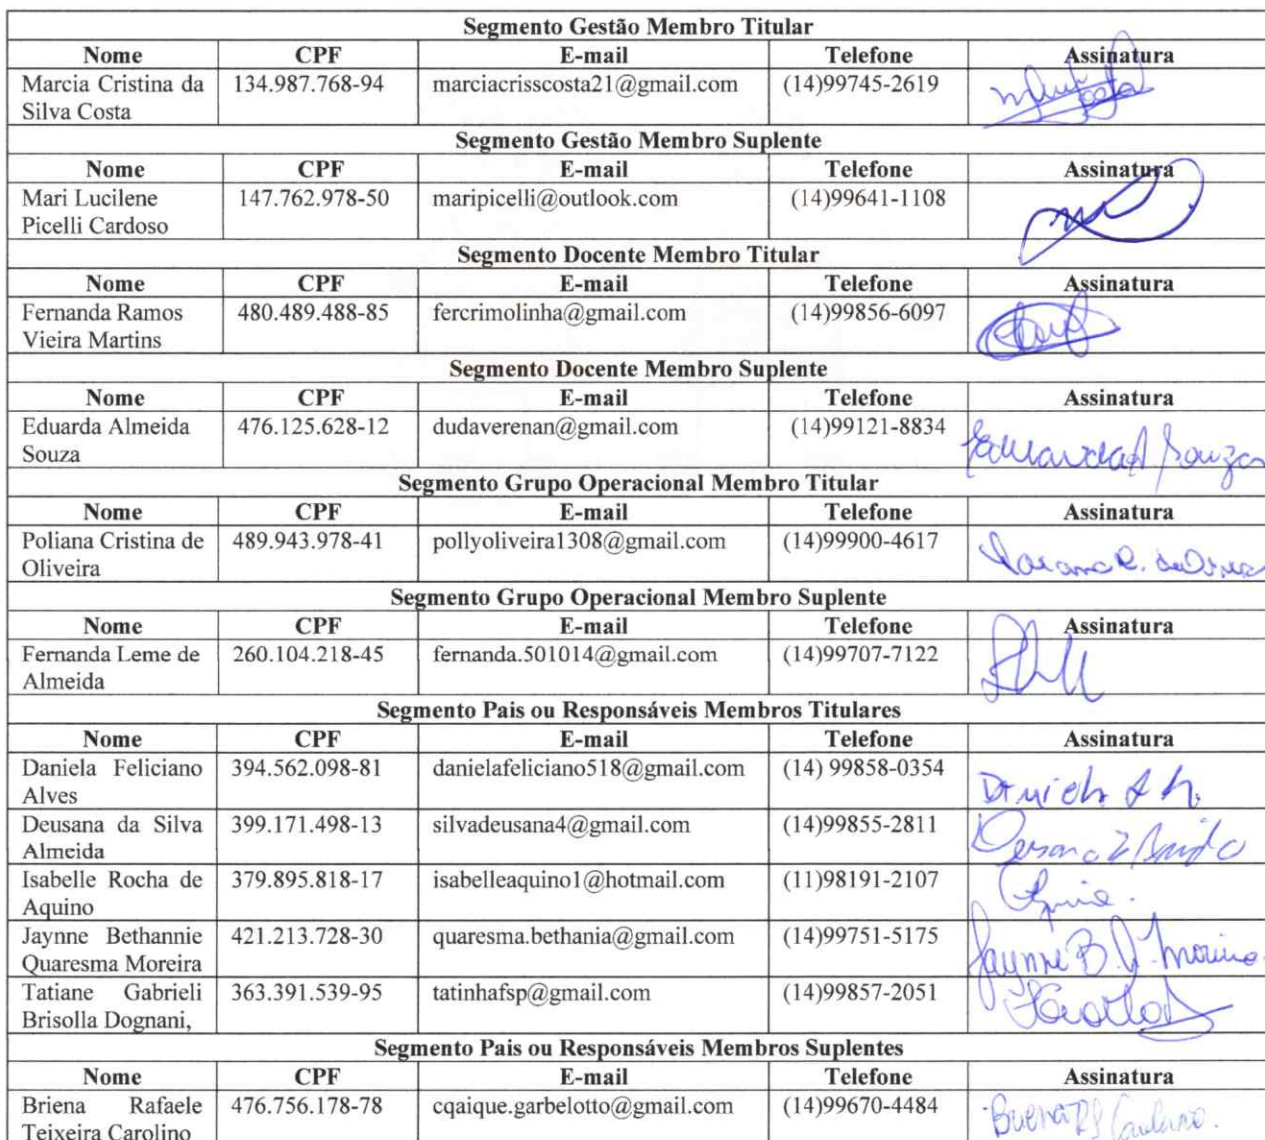 Segmento Gestão Membro Titular
Nome CPF E-mail Telefone Assinatura
Marcia Cristina da 134.987.768-94 marciacrisscosta21@gmail.com (14)99745-2619
Silva Costa
Segmento Gestão Membro Suplente
Nome CPF E-mail Telefone Assinatura
Mari Lucilene 147.762.978-50 maripicelli@outlook.com (14)99641-1108
Picelli Cardoso
Segmento Docente Membro Titular
Nome CPF E-mail Telefone Assinatura
Fernanda Ramos 480.489.488-85 fercrimolinha@gmail.com (14)99856-6097
Vieira Martins
Segmento Docente Membro Suplente
Nome CPF E-mail Telefone Assinatura
Eduarda Almeida 476.125.628-12 dudaverenan@gmail.com (14)99121-8834 Eduarda A Souza
Souza
Segmento Grupo Operacional Membro Titular
Nome CPF E-mail Telefone Assinatura
Poliana Cristina de 489.943.978-41 pollyoliveira1308@gmail.com (14)99900-4617
Oliveira
Segmento Grupo Operacional Membro Suplente
Nome CPF E-mail Telefone Assinatura
Fernanda Leme de 260.104.218-45 fernanda.501014@gmail.com (14)99707-7122
Almeida
Segmento Pais ou Responsáveis Membros Titulares
Nome CPF E-mail Telefone Assinatura
Daniela Feliciano 394.562.098-81 danielafeliciano518@gmail.com (14) 99858-0354
Alves
Deusana da Silva 399.171.498-13 silvadeusana4@gmail.com (14)99855-2811
Almeida
Isabelle Rocha de 379.895.818-17 isabelleaquino1@hotmail.com (11)98191-2107
Aquino
Jaynne Bethannie 421.213.728-30 quaresma.bethania@gmail.com (14)99751-5175
Quaresma Moreira
Tatiane Gabrieli 363.391.539-95 tatinhafsp@gmail.com (14)99857-2051
Brisolla Dognani,
Segmento Pais ou Responsáveis Membros Suplentes
Nome CPF E-mail Telefone Assinatura
Briena Rafaele 476.756.178-78 cqaique.garbelotto@gmail.com (14)99670-4484
Teixeira Carolino